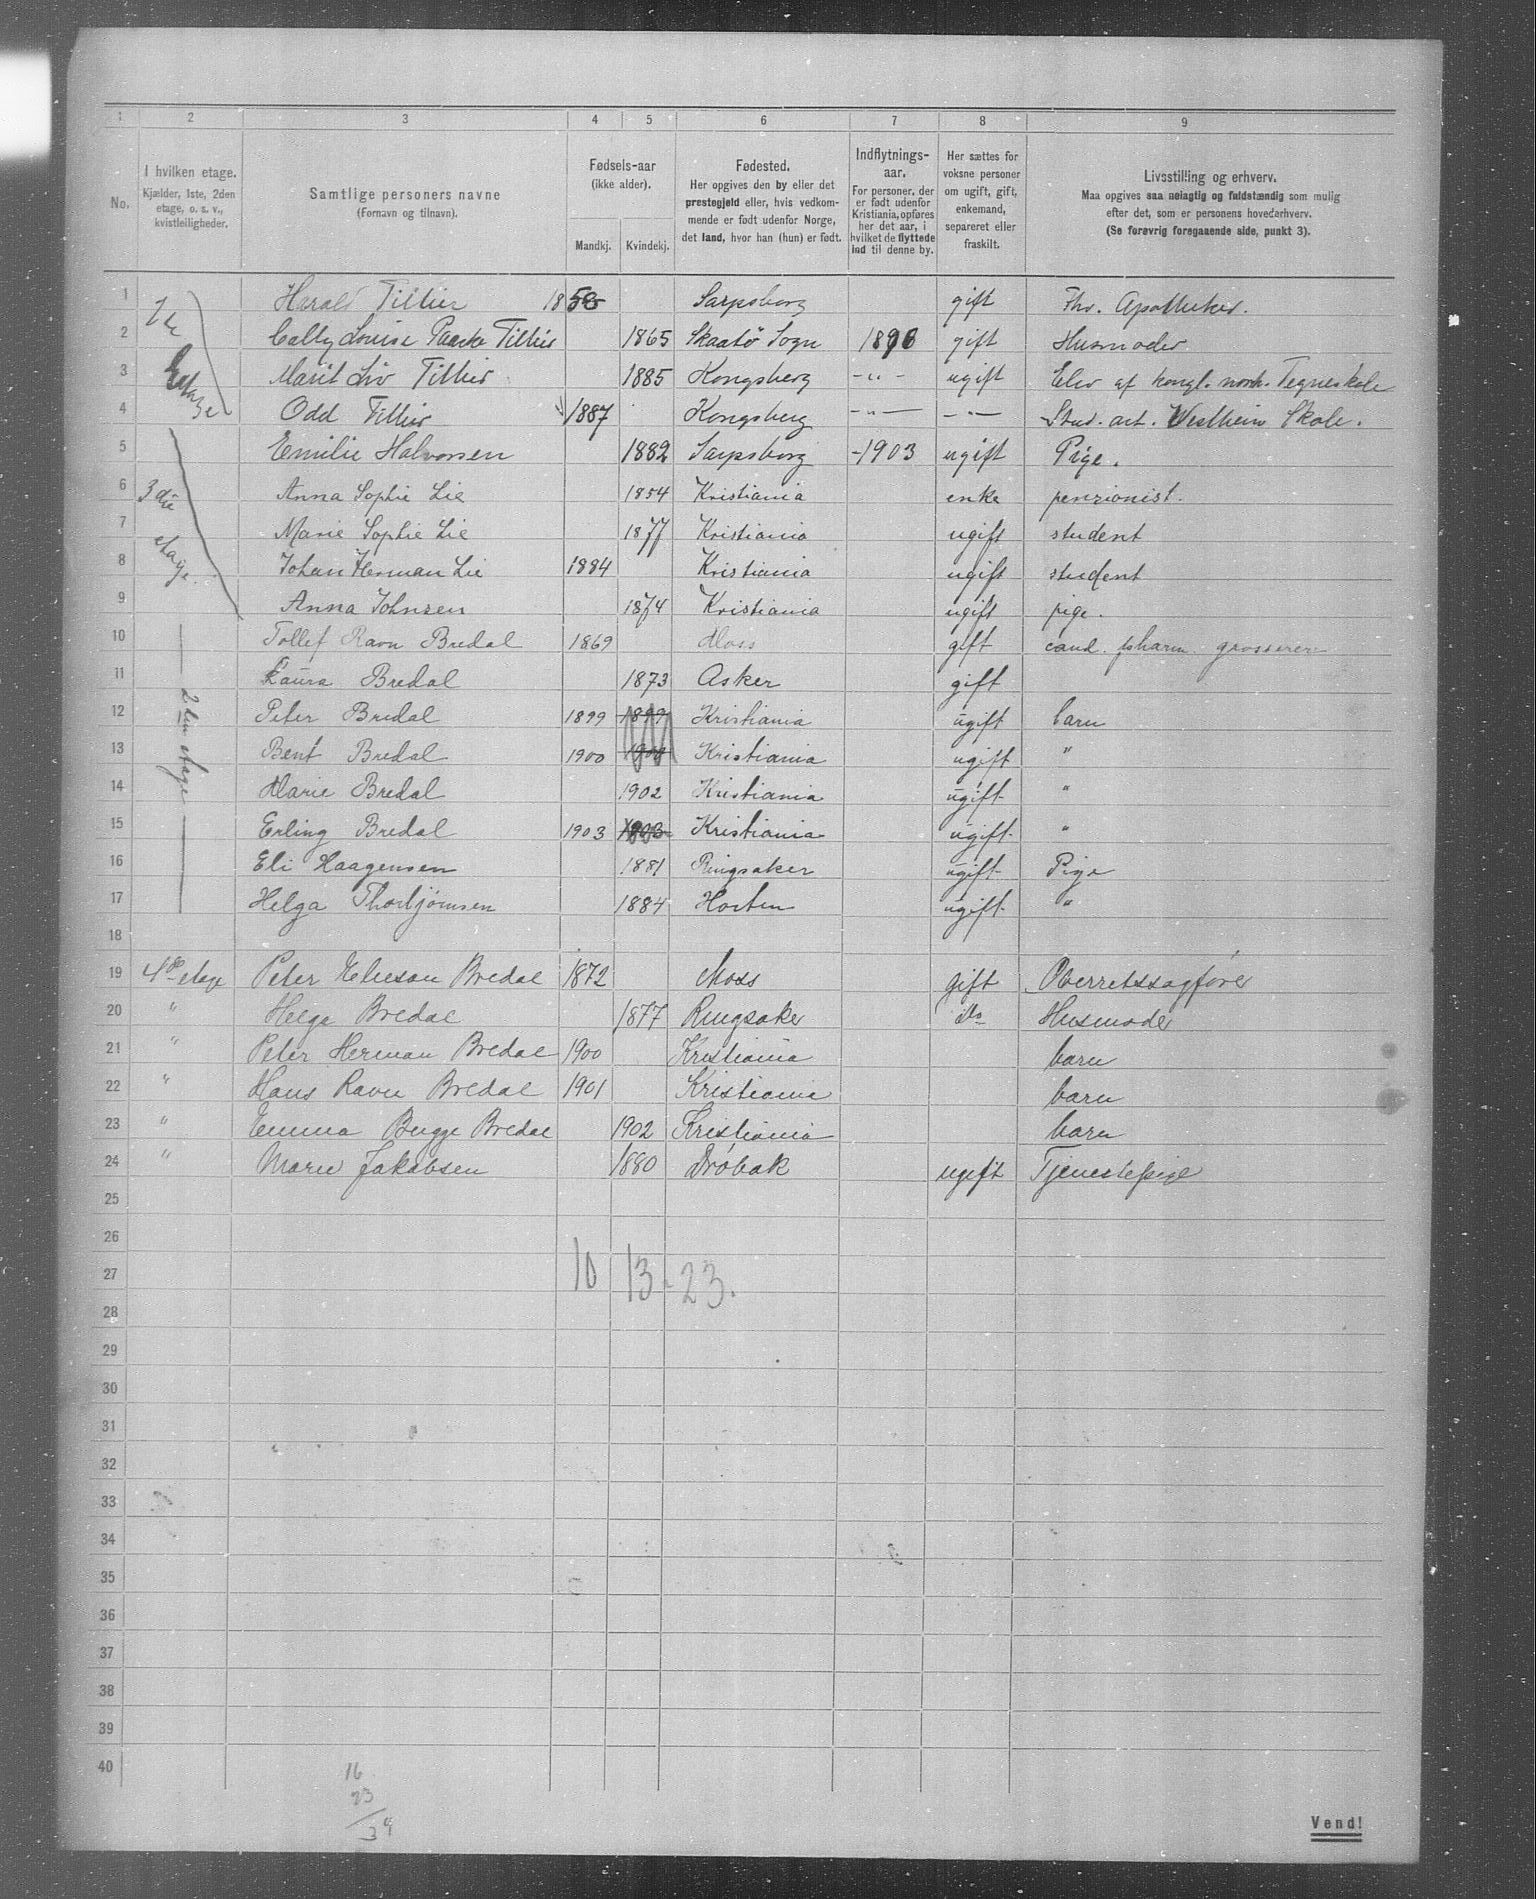 1 2 3 4 5 6 7 8 9
No.
I hvilken etage.
Kjælder, 1ste, 2den
etage, o. s. v.,
kvistleiligheder.
Samtlige personers navne
(Fornavn og tilnavn).
Fødsels-aar
(ikke alder).
Mandkj. Kvindekj.
Fødested.
Her opgives den by eller det
prestegjeld eller, hvis vedkom-
mende er født udenfor Norge,
det land, hvor han (hun) er født.
Indflytnings-
aar.
For personer, der
er født udenfor
Kristiania, opføres
her det aar, i
hvilket de flyttede
ind til denne by.
Her sættes for
voksne personer
om ugift, gift,
enkemand,
separeret eller
fraskilt.
Livsstilling og erhverv.
Maa opgives saa nøiagtig og fuldstændig som mulig
efter det, som er personens hovederhverv.
(Se forøvrig foregaaende side, punkt 3).
1 Harald Tillier 1858 Sarpsborg gift Fhv. Apotheker.
2 Cally Louise Tillier 1865 Skaatø Sogn gift Husmoder
3 Etage Marit Liv Tillier 1885 Kongsberg -"- ugift Elev af kongl. norsk. Tegneskole
4 Odd Tillier 1887 Kongsberg -"- -"- Stud. art. Westheim Skole.
5 Emilie Halvorsen 1882 Sarpsborg 1903 ugift Pige.
6 3die Anna Sophie Lie 1854 Kristiania enke penzionist.
7 etage Marie Sophie Lie 1877 Kristiania ugift student
8 Johan Herman Lie 1884 Kristiania ugift student
9 Anna Johnsen 1874 Kristiania ugift pige.
10 Tollef Ravn Bredal 1869 Moss gift cand. pharm. grosserer
11 Laura Bredal 1873 Asker gift
12 2den etage Peter Bredal 1899 1899 Kristiania ugift barn
13 Bent Bredal 1900 1900 Kristiania ugift "
14 Marie Bredal 1902 Kristiania ugift "
15 Erling Bredal 1903 1903 Kristiania ugift "
16 Eli Haagensen 1881 Ringsaker ugift Pige
17 Helga Thorbjørnsen 1884 Horten ugift "
18
19 4de etage Peter Elieson Bredal 1872 Moss gift Overretssagfører
20 " Helga Bredal 1877 Ringsaker do Husmoder
21 " Peter Herman Bredal 1900 Kristiania barn
22 " Hans Ravn Bredal 1901 Kristiania barn
23 " Emma Bugge Bredal 1902 Kristiania barn
24 " Marie Jakobsen 1880 Drøbak ugift Tjenestepige
25
26
27 10 13 - 23.
28
29
30
31
32
33
34
35
36
37
38
39
40
16
23
39
Vend!